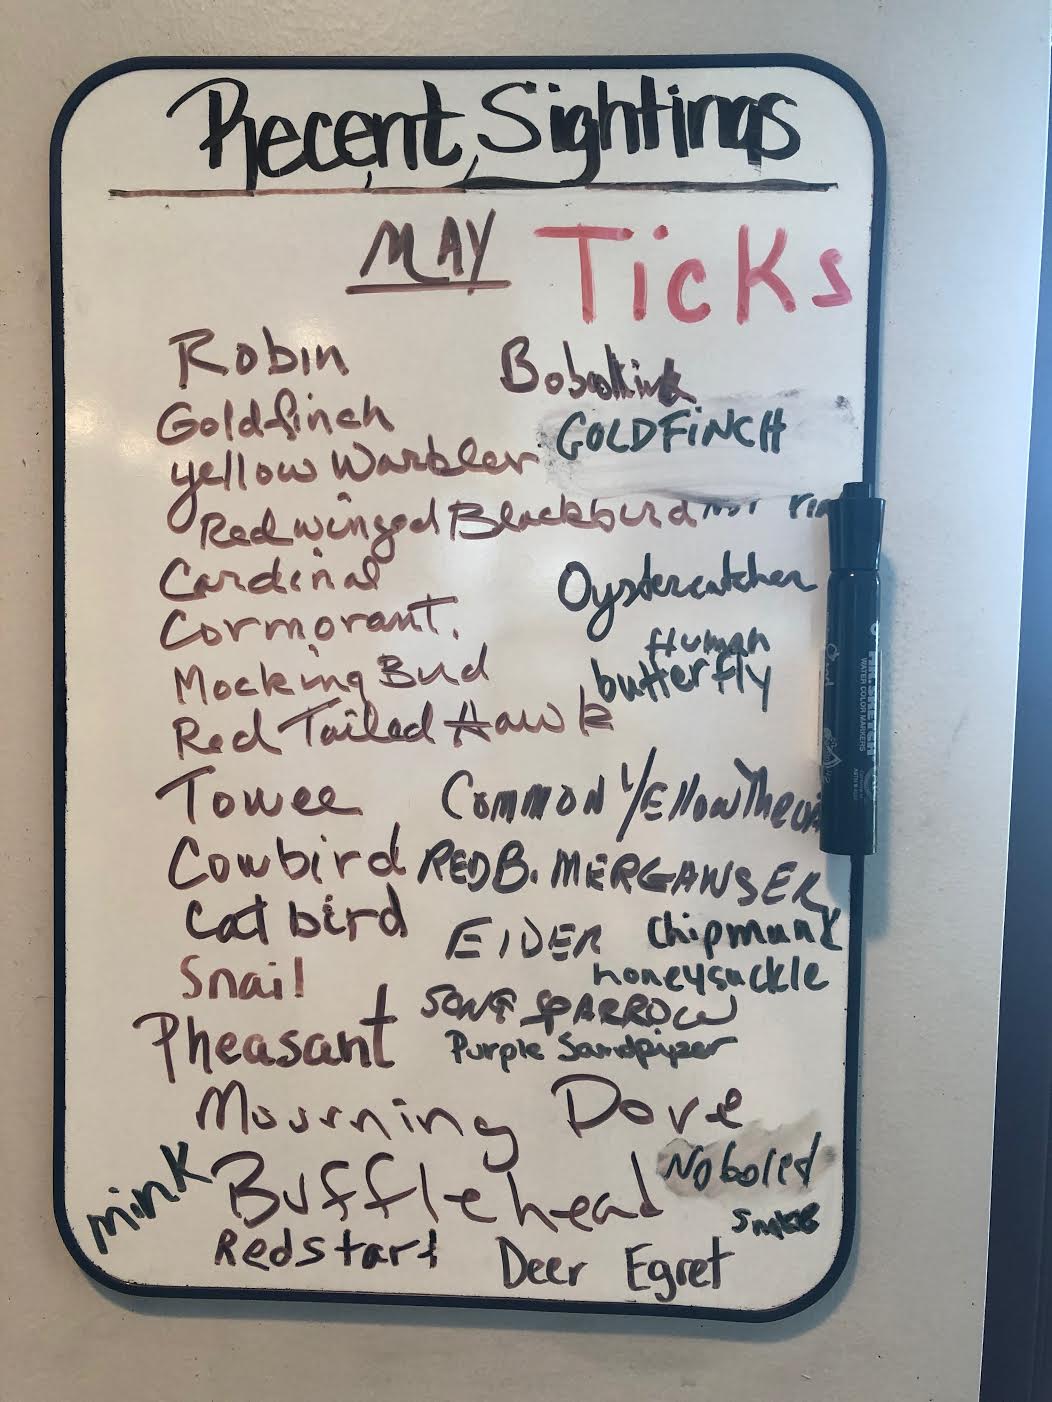 Recent Sightings
MAY
Ticks
Robin
Bobolink
Goldfinch
GOLDFINCH
yellow Warbler
Red winged Blackbird
Cardinal
Oystercatcher
Cormorant.
Human
Mocking Bird
butterfly
Red Tailed Hawk
Towee
COMMON YEllow
Cowbird
RED B. MERGANSER
Cat bird
EIDER
Chipmunk
honeysuckle
Snail
SONG SPARROW
Pheasant
Purple Sandpiper
Mourning Dove
mink
Bufflehead
Redstart
Deer
Egret
MR. SKETCH
WATER COLOR MARKERS